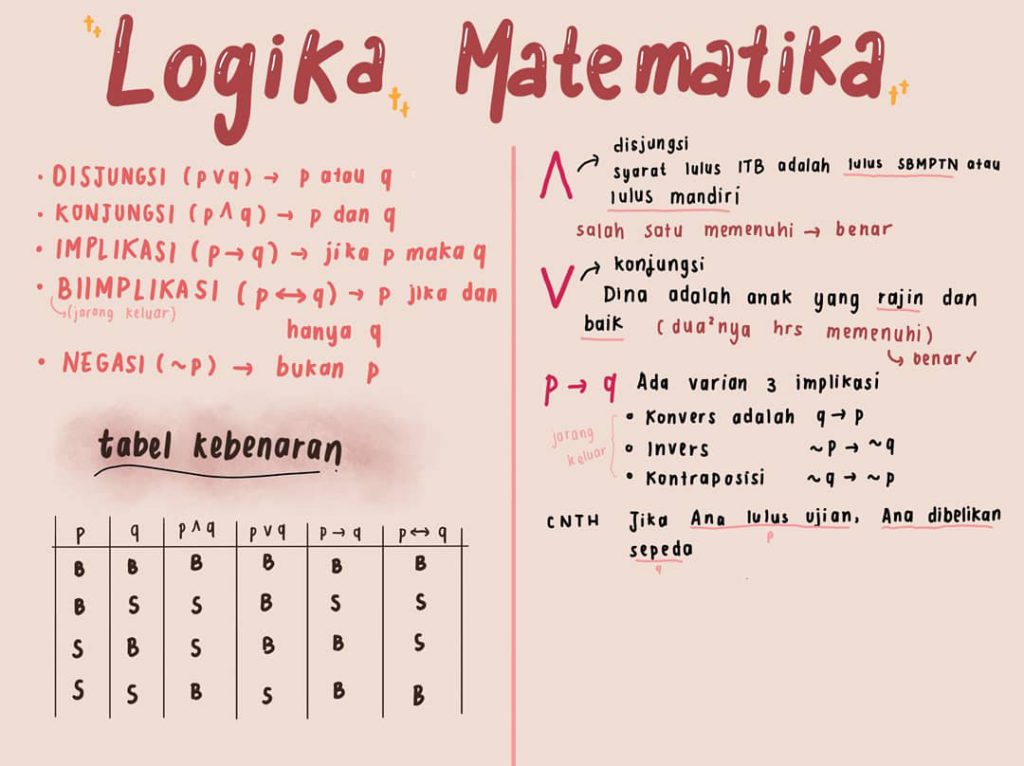 Logika Matematika
• DISJUNGSI (p ∨ q) → p atau q
• KONJUNGSI (p ∧ q) → p dan q
• IMPLIKASI (p → q) → jika p maka q
• BIIMPLIKASI (p ↔ q) → p jika dan
(jarang keluar)
hanya q
• NEGASI (~p) → bukan p
tabel kebenaran
p q p ∧ q p ∨ q p → q p ↔ q
B B B B B B
B S S B S S
S B S B B S
S S B S B B
∧ → disjungsi
syarat lulus ITB adalah lulus SBMPTN atau
lulus mandiri
salah satu memenuhi → benar
∨ → konjungsi
Dina adalah anak yang rajin dan
baik (dua²nya hrs memenuhi)
↳ benar ✓
p → q Ada varian 3 implikasi
jarang
keluar
• Konvers adalah q → p
• Invers ~p → ~q
• Kontraposisi ~q → ~p
CNTH Jika Ana lulus ujian, Ana dibelikan
p
sepeda
q